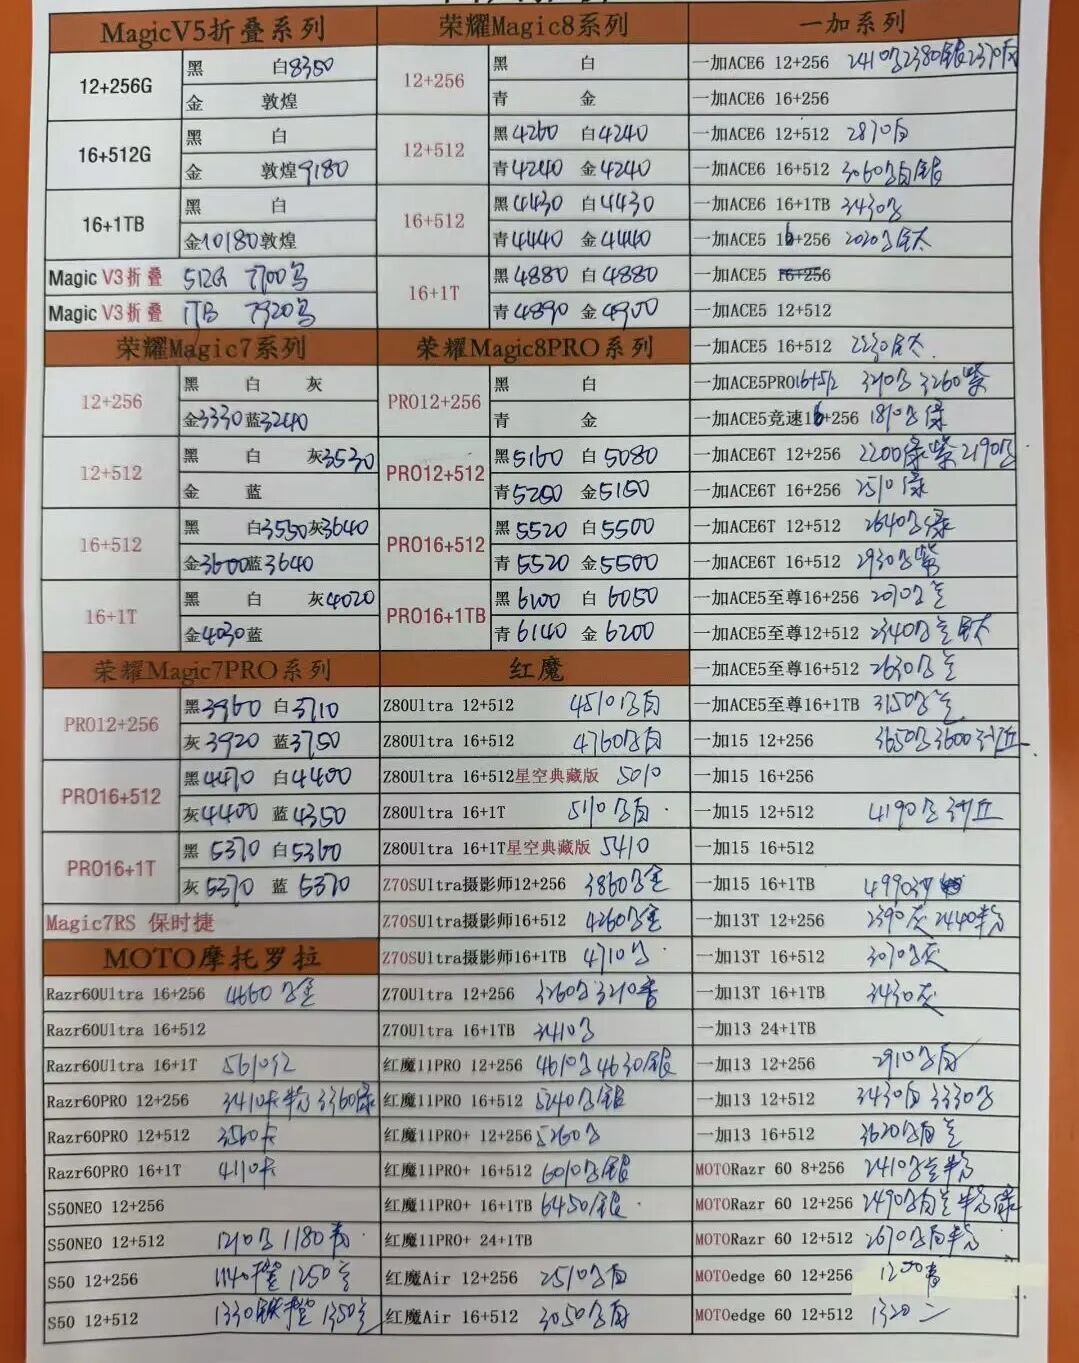 MagicV5折叠系列
12+256G
黑 白8350
金 敦煌
16+512G
黑 白
金 敦煌9180
16+1TB
黑 白
金10180敦煌
Magic V3折叠 512G 7700
Magic V3折叠 1TB 7920
荣耀Magic7系列
12+256
黑 白 灰
金3330蓝3240
12+512
黑 白 灰3530
金 蓝
16+512
黑 白3550灰3640
金3600蓝3640
16+1T
黑 白 灰4020
金4030蓝
荣耀Magic7PRO系列
PRO12+256
黑3960 白3710
灰3920 蓝3750
PRO16+512
黑4470 白4400
灰4400 蓝4350
PRO16+1T
黑5370 白5360
灰5370 蓝5370
Magic7RS 保时捷
MOTO摩托罗拉
Razr60Ultra 16+256 4660
Razr60Ultra 16+512
Razr60Ultra 16+1T 5610红
Razr60PRO 12+256 3410 3360绿
Razr60PRO 12+512 3560
Razr60PRO 16+1T 4110
S50NEO 12+256
S50NEO 12+512 1180
S50 12+256 1140 1250
S50 12+512 1330 1350
荣耀Magic8系列
12+256
黑 白
青 金
12+512
黑4260 白4240
青4240 金4240
16+512
黑4430 白4430
青4440 金4440
16+1T
黑4880 白4880
青4890 金4900
荣耀Magic8PRO系列
PRO12+256
黑 白
青 金
PRO12+512
黑5160 白5080
青5200 金5150
PRO16+512
黑5520 白5500
青5520 金5500
PRO16+1TB
黑6100 白6050
青6140 金6200
红魔
Z80Ultra 12+512 4510 白
Z80Ultra 16+512 4760 白
Z80Ultra 16+512星空典藏版 5010
Z80Ultra 16+1T 5110 白
Z80Ultra 16+1T星空典藏版 5410
Z70SUltra摄影师12+256 3860
Z70SUltra摄影师16+512 4260
Z70SUltra摄影师16+1TB 4710
Z70Ultra 12+256 3260 3210
Z70Ultra 16+1TB 3410
红魔11PRO 12+256 4610 4630银
红魔11PRO 16+512 5240 银
红魔11PRO+ 12+256 5260
红魔11PRO+ 16+512 6010 银
红魔11PRO+ 16+1TB 6450银
红魔11PRO+ 24+1TB
红魔Air 12+256 2510 白
红魔Air 16+512 3050 白
一加系列
一加ACE6 12+256 2410 2380银2370白
一加ACE6 16+256
一加ACE6 12+512 2870白
一加ACE6 16+512 3060 白银
一加ACE6 16+1TB 3430
一加ACE5 16+256 2020 钛
一加ACE5 16+256
一加ACE5 12+512
一加ACE5 16+512 2230钛
一加ACE5PRO16+512 3210 3260紫
一加ACE5竞速16+256 1810 绿
一加ACE6T 12+256 2200绿紫 2190
一加ACE6T 16+256 2510绿
一加ACE6T 12+512 2640 绿
一加ACE6T 16+512 2930 紫
一加ACE5至尊16+256 2070
一加ACE5至尊12+512 2340 钛
一加ACE5至尊16+512 2630
一加ACE5至尊16+1TB 3150
一加15 12+256 3650 3600沙丘
一加15 16+256
一加15 12+512 4190 沙丘
一加15 16+512
一加15 16+1TB 4990沙
一加13T 12+256 2390灰 2440粉
一加13T 16+512 3070灰
一加13T 16+1TB 3430灰
一加13 24+1TB
一加13 12+256 2910 白
一加13 12+512 3430白 3330
一加13 16+512 3620 白
MOTORazr 60 8+256 2410 粉
MOTORazr 60 12+256 2490 白 粉绿
MOTORazr 60 12+512 2670 白粉
MOTOedge 60 12+256 1200
MOTOedge 60 12+512 1320